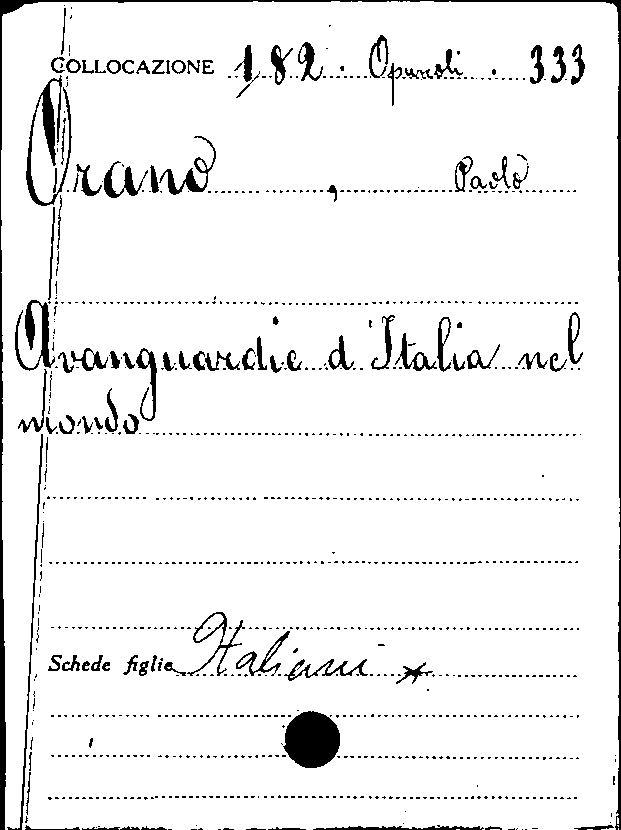 COLLOCAZIONE 182 . Opuscoli . 333
Orano , Paolo
Avanguardie d'Italia nel
mondo
Schede figlie Italiani *